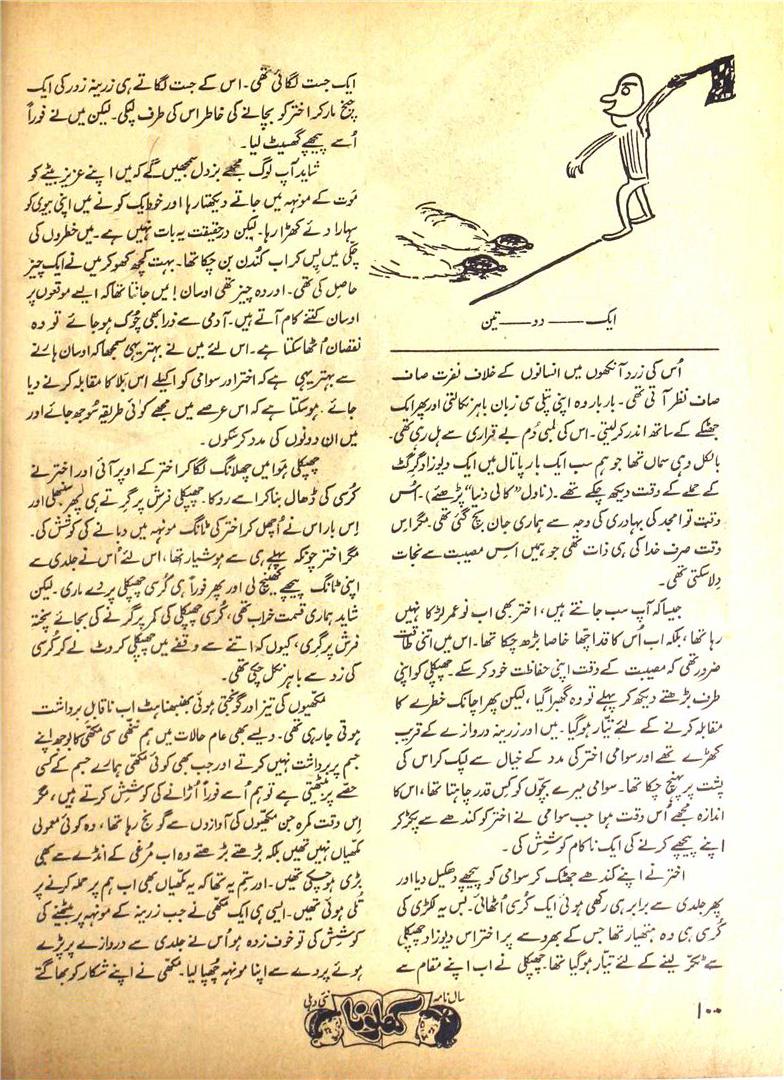 ایک ــــــ دو ــــــ تین
اُس کی زرد آنکھوں میں انسانوں کے خلاف نفرت صاف
صاف نظر آتی تھی۔ بار بار وہ اپنی پتلی سی زبان باہر نکالتی اور پھر ایک
جھٹکے کے ساتھ اندر کر لیتی۔ اس کی لمبی دُم بے قراری سے ہل رہی تھی۔
بالکل وہی سماں تھا جو ہم سب ایک بار پاتال میں ایک دیوزاد گرگٹ
کے حملے کے وقت دیکھ چکے تھے۔ (ناول "کالی دنیا" پڑھئے)۔ اُس
وقت تو امجد کی بہادری کی وجہ سے ہماری جان بچ گئی تھی۔ مگر اس
وقت صرف خدا کی ہی ذات تھی جو ہمیں اس مصیبت سے نجات
دِلا سکتی تھی۔
جیسا کہ آپ سب جانتے ہیں، اختر بھی اب نو عمر لڑکا نہیں
رہا تھا، بلکہ اب اُس کا قد اچھا خاصا بڑھ چکا تھا۔ اس میں اتنی طاقت
ضرور تھی کہ مصیبت کے وقت اپنی حفاظت خود کر سکے۔ چھپکلی کو اپنی
طرف بڑھتے دیکھ کر پہلے تو وہ گھبرا گیا، لیکن پھر اچانک خطرے کا
مقابلہ کرنے کے لئے تیار ہو گیا۔ میں اور زرینہ دروازے کے قریب
کھڑے تھے اور سوامی اختر کی مدد کے خیال سے لپک کر اس کی
پشت پر پہنچ چکا تھا۔ سوامی میرے بچوں کو کس قدر چاہتا تھا، اس کا
اندازہ مجھے اُس وقت ہوا جب سوامی نے اختر کو کندھے سے پکڑ کر
اپنے پیچھے کرنے کی ایک ناکام کوشش کی۔
اختر نے اپنے کندھے جھٹک کر سوامی کو پیچھے دھکیل دیا اور
پھر جلدی سے برابر ہی رکھی ہوئی ایک کُرسی اُٹھائی۔ بس یہ لکڑی کی
کُرسی ہی وہ ہتھیار تھا جس کے بھروسے پر اختر اس دیوزاد چھپکلی
سے ٹکّر لینے کے لئے تیار ہو گیا تھا۔ چھپکلی نے اب اپنے مقام سے
ایک جست لگائی تھی۔ اس کے جست لگاتے ہی زرینہ زور کی ایک
چیخ مار کر اختر کو بچانے کی خاطر اس کی طرف لپکی۔ لیکن میں نے فوراً
اُسے پیچھے گھسیٹ لیا۔
شاید آپ لوگ مجھے بزدل سمجھیں گے کہ میں اپنے عزیز بیٹے کو
موت کے مونہہ میں جاتے دیکھتا رہا اور خود ایک کونے میں اپنی بیوی کو
سہارا دئے کھڑا رہا۔ لیکن درحقیقت یہ بات نہیں ہے۔ میں خطروں کی
چکّی میں پس کر اب کُندن بن چکا تھا۔ بہت کچھ کھو کر میں نے ایک چیز
حاصل کی تھی۔ اور وہ چیز تھی اوسان! میں جانتا تھا کہ ایسے موقعوں پر
اوسان کتنے کام آتے ہیں۔ آدمی سے ذرا بھی چُوک ہو جائے تو وہ
نقصان اُٹھا سکتا ہے۔ اس لئے میں نے بہتر یہی سمجھا کہ اوسان ہارنے
سے بہتر یہی ہے کہ اختر اور سوامی کو اکیلے اس بلا کا مقابلہ کرنے دیا
جائے۔ ہو سکتا ہے کہ اس عرصے میں مجھے کوئی طریقہ سُوجھ جائے اور
میں ان دونوں کی مدد کر سکوں۔
چھپکلی ہوا میں چھلانگ لگا کر اختر کے اوپر آئی اور اختر نے
کُرسی کی ڈھال بنا کر اسے روکا۔ چھپکلی فرش پر گرتے ہی پھر سنبھلی اور
اِس بار اس نے اُچھل کر اختر کی ٹانگ مونہہ میں دبانے کی کوشش کی۔
مگر اختر چونکہ پہلے ہی سے ہوشیار تھا، اس لئے اُس نے جلدی سے
اپنی ٹانگ پیچھے کھینچ لی اور پھر فوراً ہی کُرسی چھپکلی پر دے ماری۔ لیکن
شاید ہماری قسمت خراب تھی، کُرسی چھپکلی کی کمر پر گرنے کی بجائے پختہ
فرش پر گری، کیوں کہ اتنے سے وقفے میں چھپکلی کروٹ لے کر کُرسی
کی زد سے باہر نکل چکی تھی۔
مکھیوں کی تیز اور گونجتی ہوئی بھنبھناہٹ اب ناقابلِ برداشت
ہوتی جا رہی تھی۔ ویسے بھی عام حالات میں ہم ننھی سی مکھی کا بوجھ اپنے
جسم پر برداشت نہیں کرتے اور جب بھی کوئی مکھی ہمارے جسم کے کسی
حصّے پر بیٹھتی ہے تو ہم اُسے فوراً اُڑانے کی کوشش کرتے ہیں، مگر
اِس وقت کمرہ جن مکھیوں کی آوازوں سے گونج رہا تھا، وہ کوئی معمولی
مکھیاں نہیں تھیں بلکہ بڑھتے بڑھتے وہ اب مُرغی کے انڈے سے بھی
بڑی ہو چکی تھیں۔ اور ستم یہ تھا کہ یہ مکھیاں بھی اب ہم پر حملہ کرنے پر
تُلی ہوئی تھیں۔ ایسی ہی ایک مکھی نے جب زرینہ کے مونہہ پر بیٹھنے کی
کوشش کی تو خوف زدہ ہو اُس نے جلدی سے دروازے پر پڑے
ہوئے پردے سے اپنا مونہہ چُھپا لیا۔ مکھی نے اپنے شکار کو بھاگتے
سال نامہ کھلونا نئی دہلی
۱۰۰